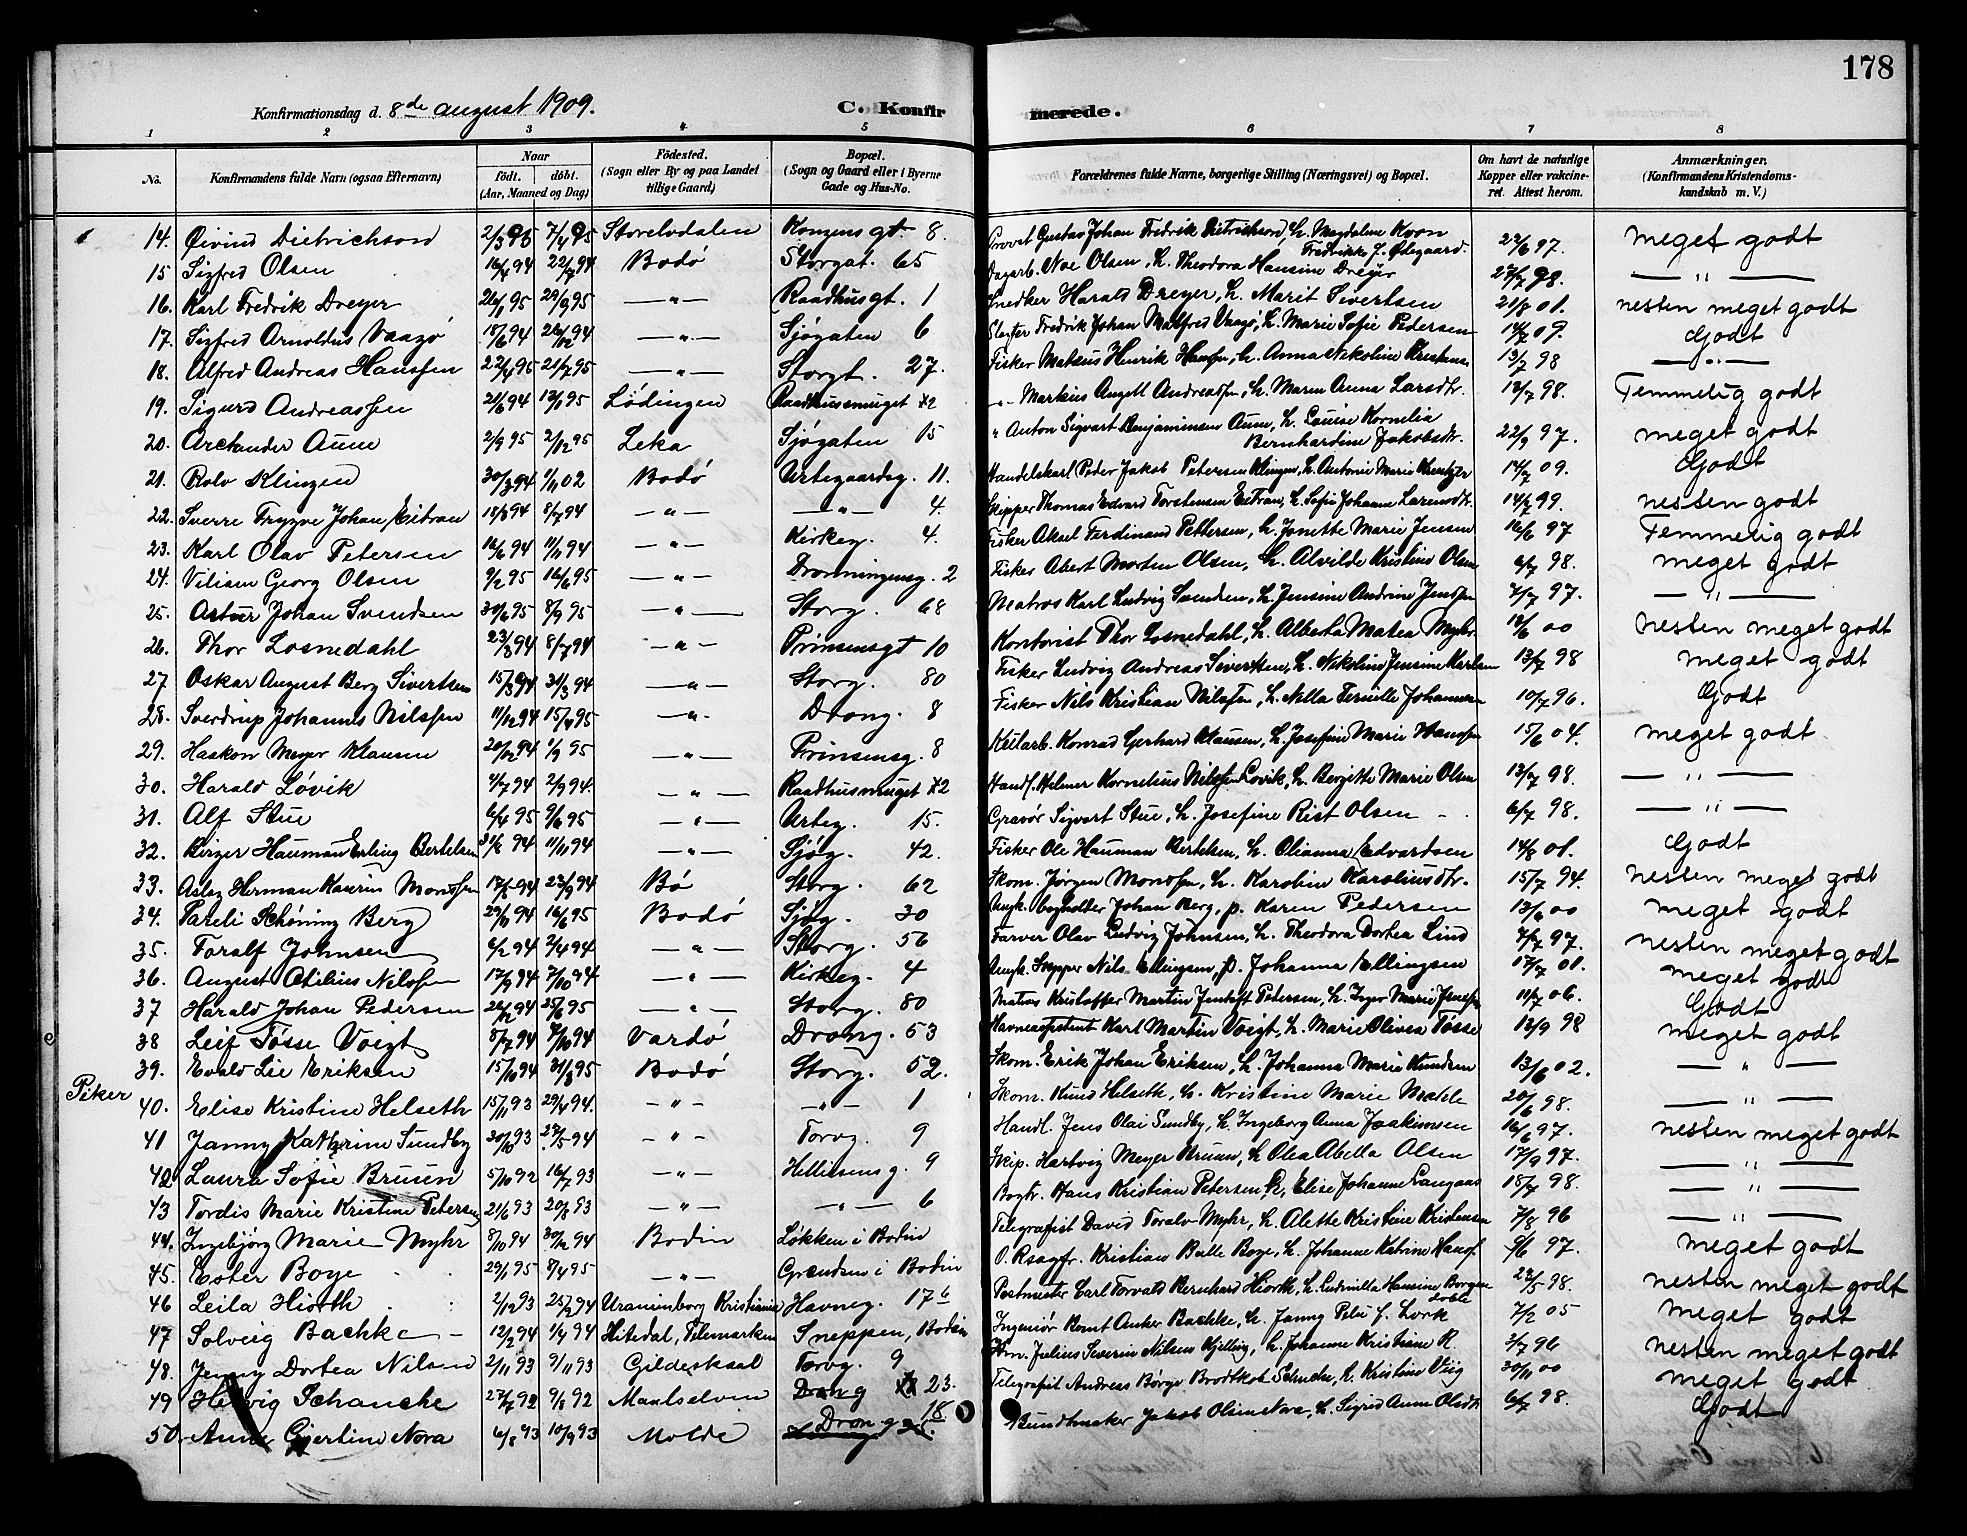 178
Konfirmationsdag d. 8de august 1909.
C. Konfirmerede.
1 2 3 4 5 6 7 8
No. Konfirmandens fulde Navn (ogsaa Efternavn) Naar födt. döbt. (Aar, Maaned og Dag) Födested. (Sogn eller By og paa Landet tillige Gaard) Bopæl. (Sogn og Gaard eller i Byerne Gade og Hus-No. Forældrenes fulde Navne, borgerlige Stilling (Næringsvei) og Bopæl. Om havt de naturlige Kopper eller vakcineret. Attest herom. Anmærkninger. (Konfirmandens Kristendomskundskab m. V.)
14. Øivind Dietrichson 7/4 95 Storelvdalen Kongensgt. 8. Provst Gustav Johan Fredrik Dietrichson, h. Magdalene Koon Fredrikke f. Ødegaard. 22/6 97. meget godt
15 Sigfred Olsen 16/4 94 22/7 94 Bodö Storgat. 65 Dagarb. Noe Olsen, h. Theodora Hansine Dreyer 27/7 98. — " —
16. Karl Fredrik Dreyer 29/9 95 — " — Raadhusgt. 1 Snedker Harald Dreyer, h. Marit Sivertsen 21/8 01. nesten meget godt
17. Sigfred Arnoldus Vaagö 18/6 94 26/12 94 — " — Sjøgaten 6 Slagter Fredrik Johan Vaagö, h. Marie Sofie Pedersen 14/7 09. Godt
18. Alfred Andreas Hanssen 21/7 95 — " — Storgt. 27. Fisker Mateus Henrik Hanssen, h. Anna Nikoline 13/7 98 — " —
19. Sigurd Andreassen 21/6 94 Lödingen Raadhussmuget *2 — " — Markus Angell Andreassen, h. Maren Anna Larsdtr. 12/7 98. Temmelig godt
20. Arctander Aune 2/9 95 2/12 95 Leka Sjøgaten 15 " Anton Sigvart Benjaminsen Aune, h. Louise Kornelia Bernhardine Jakobsdtr. 22/9 97. meget godt
21. Rolv Klingen 30/3 94 1/11 02 Bodö Urtegaardsg. 11. Handelskarl Peder Jakob Petersen Klingen, h. Antonie Marie 14/7 09. Godt
22. Sverre Trygve Johan Eitran 18/3 94 8/7 94 — " — — " — 4. Skipper Thomas Edvard Torstensen Eitran, h. Sofie Johanne 14/7 99. nesten godt
23. Karl Olav Petersen 16/6 94 11/11 94 — " — Kirkeg. 4. Fisker Aksel Ferdinand Pettersen, h. Janette Marie Jensen 16/6 97 Temmelig godt
24. Vilisen Georg Olsen 9/2 95 16/6 95 — " — Dronningensg. 2 Fisker Abert Morten Olsen, h. Alvilde Kristine Olsen 6/7 98. meget godt
25. Artur Johan Svendsen 8/9 95 — " — Storg. 68 Matros Karl Ludvig Svendsen, h. Jensine Andrine Jenssen 7/7 97. — " —
26. Thor Losnedahl 23/3 94 8/7 94 — " — Prinsensgt 10 Kontorist Thor Losnedahl, h. Alberta Matea Myhr. 12/6 00 nesten meget godt
27 Oskar August Berg Sivertsen 15/3 94 31/3 94 — " — Storg. 80 Fisker Ludvig Andreas Sivertsen, h. Nikoline Jensine Karlsen 13/7 98 meget godt
28. Sverdrup Johannes Nilssen 11/12 94 15/4 95 — " — Drong. 8 Fisker Nils Kristian Nilssen, h. Johannesen 10/7 96. Godt
29. Haakon Meyer Klausen 20/12 94 1/9 95 — " — Prinsensg. 8 Konrad Gerhard Klausen, h. Josefine Marie Hanssen 15/6 04. meget godt
30. Harald Lövik 4/7 94 2/9 94. — " — Raadhussmuget *2 Handl. Helmer Kornelius Nilssen Lovik, h. Bergitte Marie Olsen 13/7 98. — " —
31. Alf Stue 6/4 95 9/6 95 — " — Urteg. 15. Gravör Sigvart Stue, h. Josefine Rist Olsen 6/7 98. — " —
32. Birger Hauman Erling Bertelsen 11/11 94 — " — Sjög. 42. Fisker Ole Hauman Bertelsen, h. Olianna Edvardsen 14/8 01. Godt
33. Aslag Herman Kaurin Monssen 17/5 94 23/9 94 Bö Storg. 62 Skom. Jörgen Monssen, h. Karoline Karoliusdtr. 15/7 94. nesten meget godt
34. Pareli Schöning Berg 29/11 94 16/6 95 Bodö Sjög. 30 Johan Berg, p. Karen Pedersen 13/6 00 meget godt
35. Toralf Johnsen 4/2 94 2/4 94 — " — Storg. 56 Farver Olav Ludvig Johnsen, h. Theodora Dortea Lind 7/7 97. nesten meget godt
36. August Otilius Nilssen 17/9 94 7/10 94 — " — Kirkeg. 4 Skipper Nils Ellingsen, p. Johanna Ellingsen 17/7 01. meget godt
37 Harald Johan Pedersen 26/12 94 25/6 95 — " — Storg. 80 Matros Kristoffer Martin Jentoft Petersen, h. Inger Marie Jenssen 11/7 06. Godt
38 Leif Tösse Voigt 8/7 94 7/10 94 Vardö Drong. 53 Havneassistent Karl Martin Voigt, h. Marie Olivia Tösse 12/9 98 meget godt
39. Evald Lie Eriksen 15/10 94 31/3 95 Bodö Storg. 52. Skom. Erik Johan Eriksen, h. Johanna Marie Knudsen 13/6 02. — " —
Piker
40. Elise Kristine Helseth 15/11 93 29/4 94. — " — — " — 1 Skom. Knud Helseth, h. Kristine Marie 20/6 98. — " —
41 Janny Kathrine Sundby 30/10 93 27/5 94 — " — Torvg. 9 Handl. Jens Olai Sundby, h. Ingeborg Anna Joakimsen 16/6 97. nesten meget godt
42 Laura Sofie Bruun 5/10 92 16/7 93 — " — Hellisensg. 9 Skip. Hartvig Meyer Bruun, h. Olea Abella Olsen 17/9 97. — " —
43 Tordis Marie Kristine Petersen 21/6 93 20/8 93 — " — — " — 6 Bogtr. Hans Kristian Petersen, h, Elise Johanne Langaas 18/7 98. — " —
44. Ingebjörg Marie Myhr 8/10 94 30/12 94 Bodin Løkken i Bodin Telegrafist David Toralv Myhr, h. Alette Kristine Kristensen 7/8 96 — " —
45. Ester Boye 29/1 95 8/4 95 — " — Grændsen i Bodin O. Rsagfr. Kristian Bulle Boye, h. Johanne Katrine Hanss. 9/6 97. meget godt
46 Leila Hiorth 2/12 93 25/2 94 Uranienborg Kristiania Havneg. 17 b Postmester Carl Torvald Bernhard Hiorth, h. Ludmilla Hansine Borgen 23/5 98. nesten meget godt
47 Solveig Bachke 12/2 94 1/4 94 Hitedal, Telemarken Sneppen, Bodin Ingeniør Anker Bachke, h. Janny f. Lork 7/2 05 meget godt
48. Jenny Dortea Nilsen 2/11 93 9/11 93 Gildeskaal Torvg. 9 Julius Severin Nilsen Kjelling, h. Johanne Kristiane R. 3/7 96 nesten meget godt
49 Helvig Schanche 27/7 92 9/8 92 Maalselven Drong 23. Telegrafist Andreas Börge Brodtkob Schanche, h. Kristine Viig 30/11 00 meget godt
50. Anne Gjertine Nora 6/8 93 10/9 93 Molde Drong 18 Bundtmaker Jakob Olsen Nora, h. Sigrid Anne Olsdtr. 6/7 98. Godt